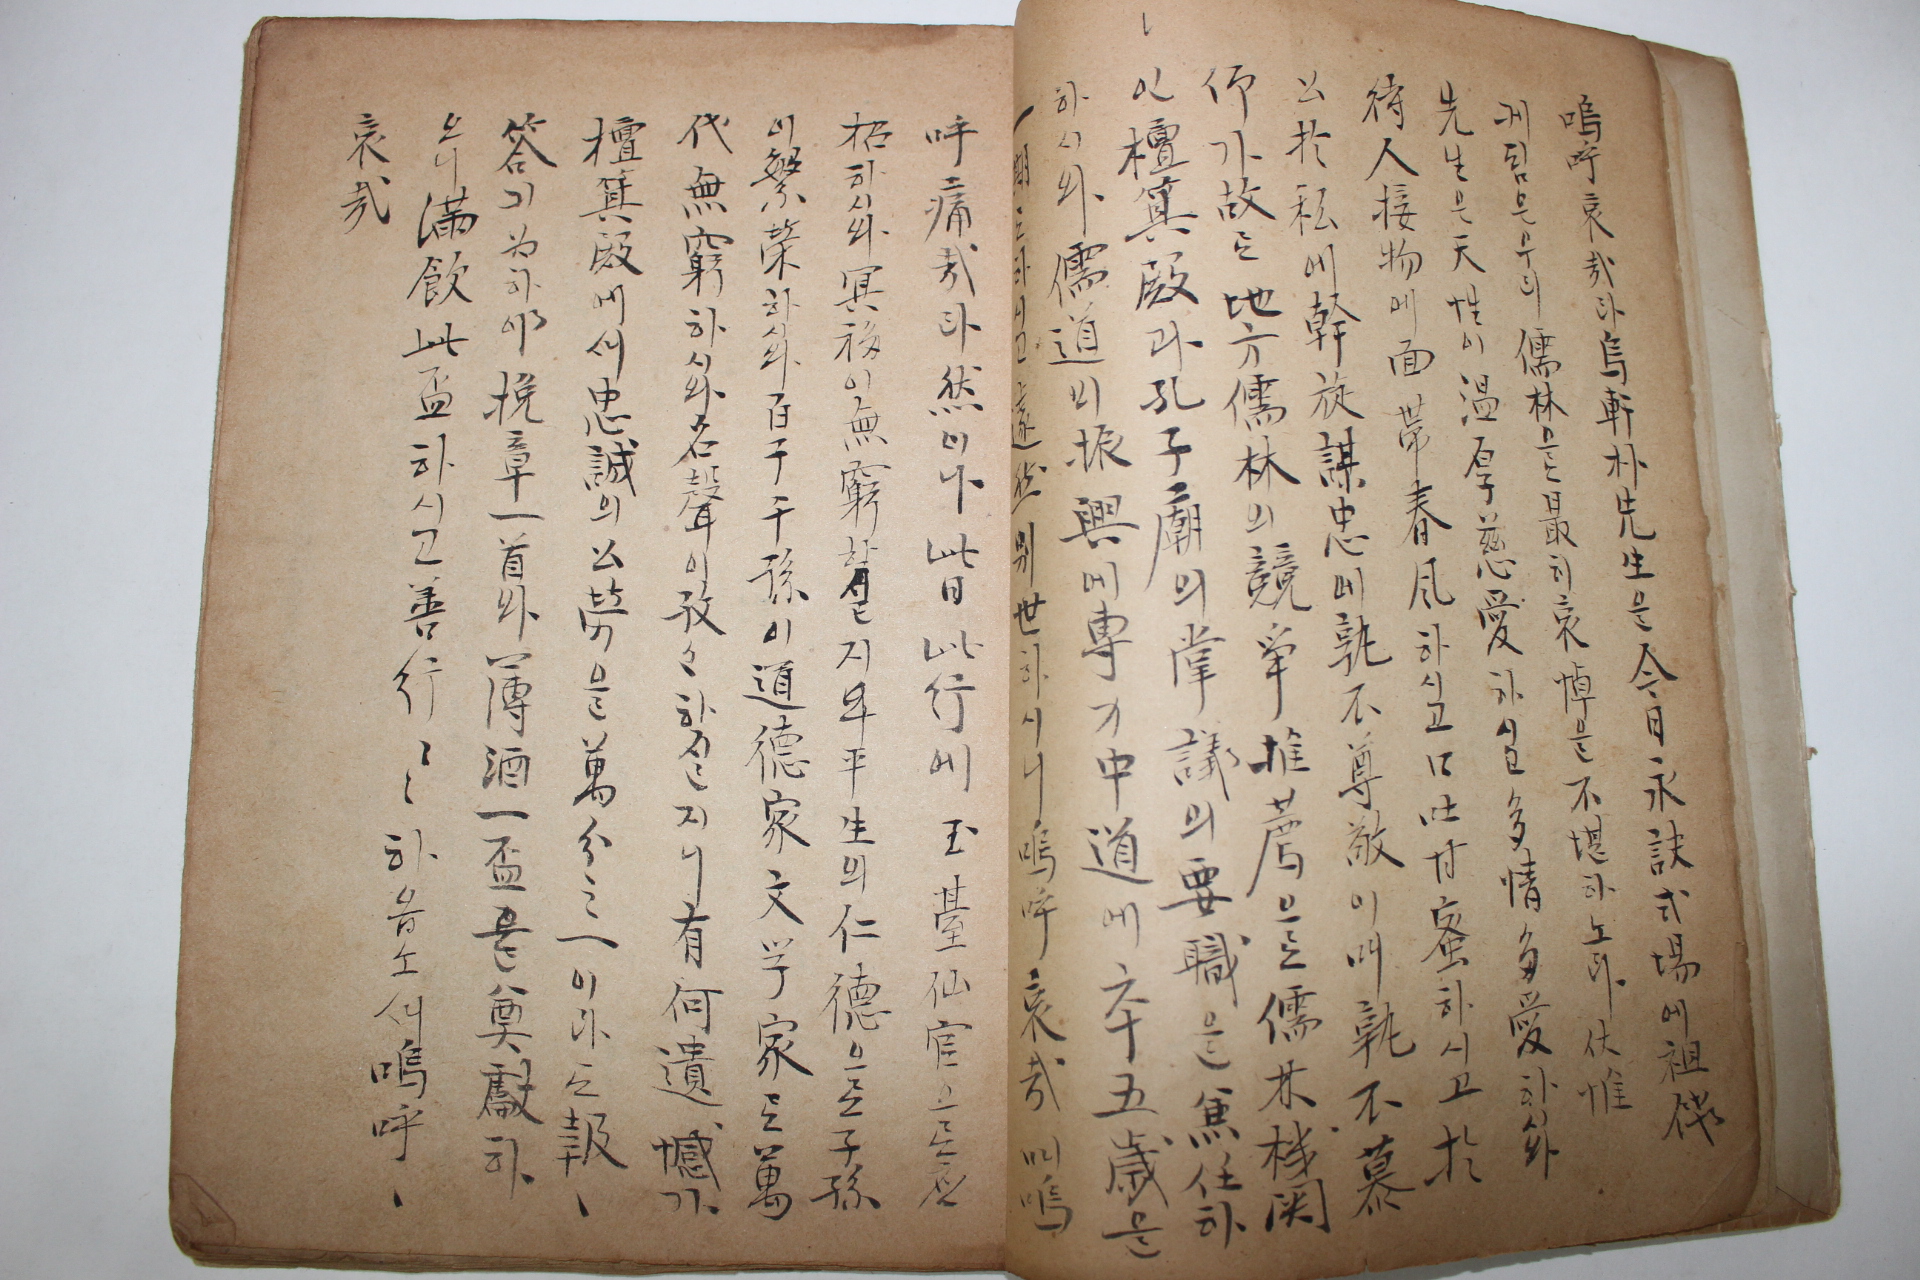 嗚呼哀哉라烏軒朴先生은今日永訣式場에祖餞
게됨은우리儒林은最히哀悼은不堪하노라伏惟
先生은天性이溫厚慈愛하심多情多愛하와
待人接物에面帶春風하시고口吐甘蜜하시고於
公於私에幹旋謀忠에孰不尊敬이며孰不慕
仰가故로地方儒林의競爭推薦으로儒林機関
인檀箕殿과孔子廟의掌議의要職은焦任하
하시와儒道의振興에專力中道에六十五歲은
期로하시고遽然別世하시니嗚呼哀哉며嗚
呼痛哉라然이나此日此行에玉臺仙官으로
招하시와冥福이無窮할지며平生의仁德으로子孫
이繁榮하와百子千孫이道德家文学家로萬
代無窮하시와名聲이孜々하실지니有何遺憾가
檀箕殿에셔忠誠의公勞은萬分之一이라도報
答기為하야挽章一首와薄酒一盃은奠獻하
오니滿飲此盃하시고善行〻〻하옵소셔嗚呼
哀哉